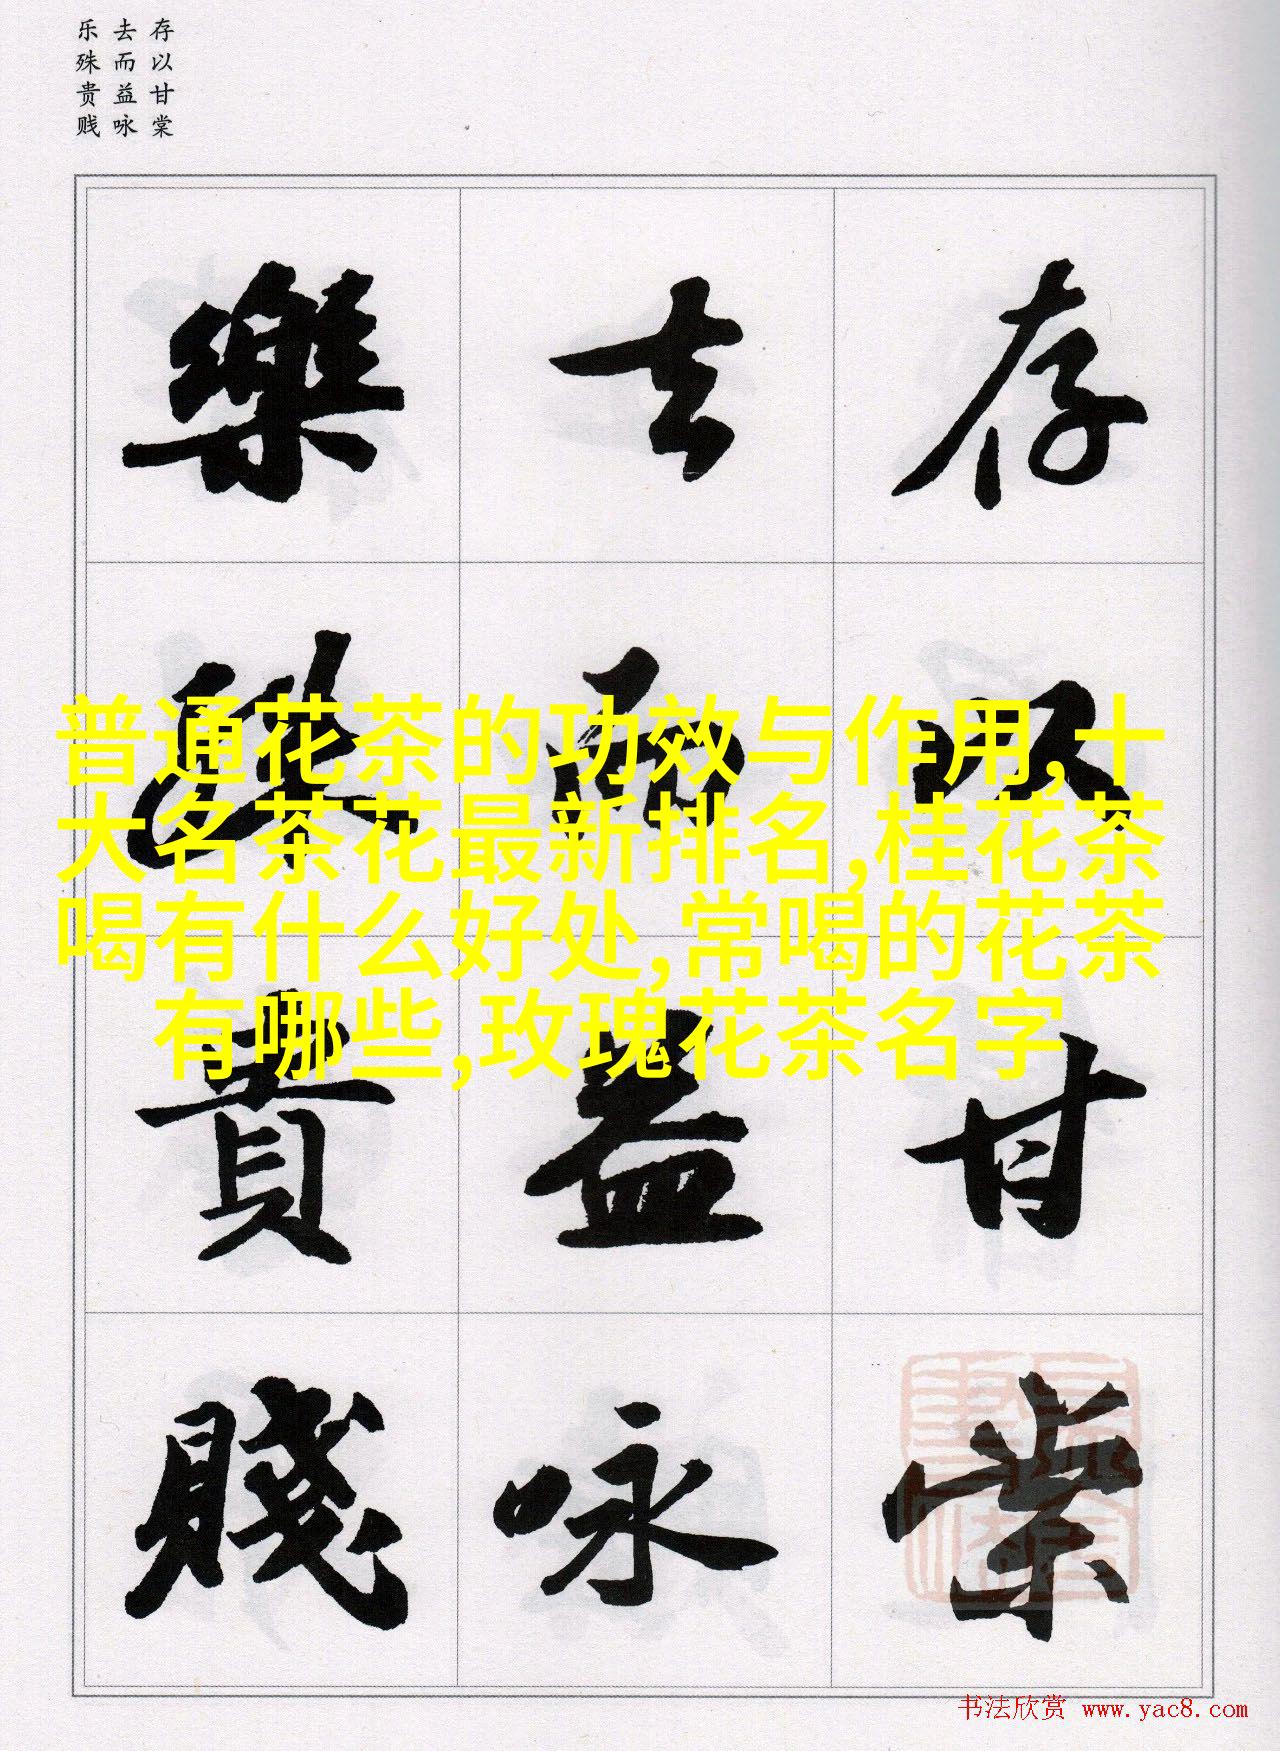 存以甘棠
去而益咏
乐殊贵贱
存以甘棠
去而益咏
樂殊貴賤
普通花茶的功效与作用,十
大名茶花最新排名,桂花茶
喝有什么好处,常喝的花茶
有哪些,玫瑰花茶名字
书法欣赏 www.yac8.com